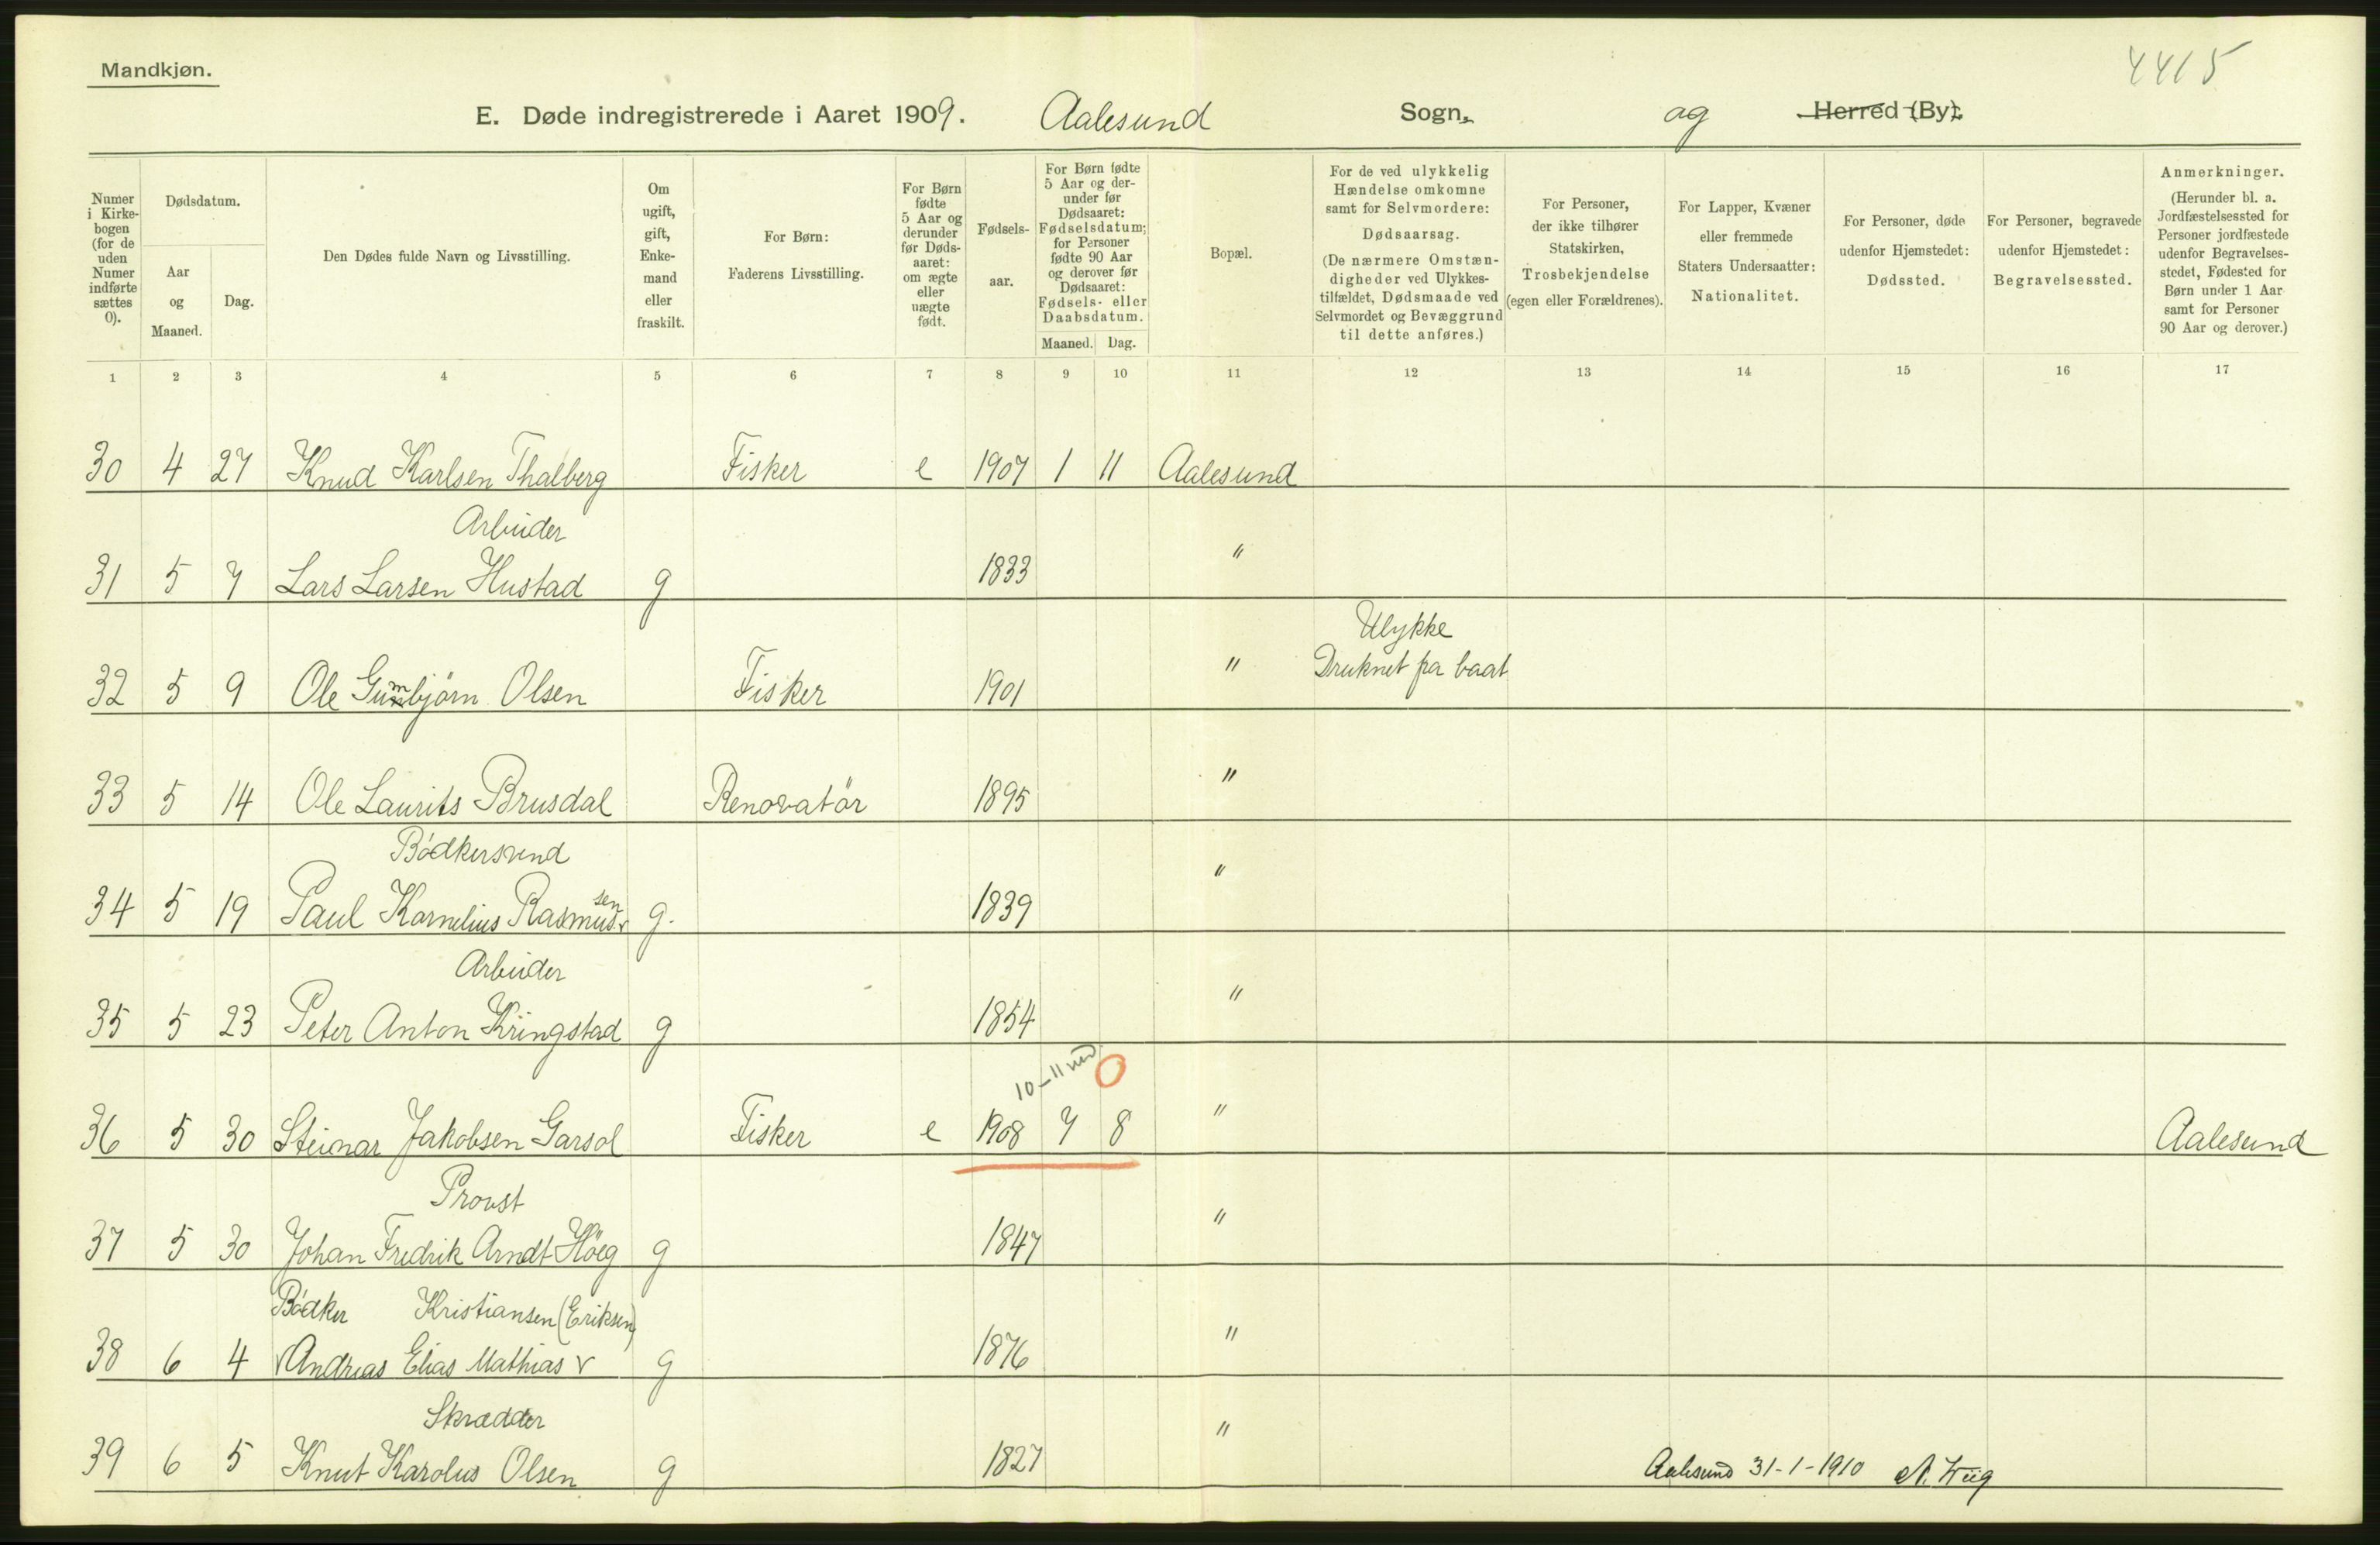 Mandkjøn.
4415
E. Døde indregistrerede i Aaret 1909. Aalesund Sogn, og Herred (By).
Numer i Kirkebogen (for de uden Numer indførte sættes 0).
Dødsdatum.
Aar og Maaned.
Dag.
Den Dødes fulde Navn og Livsstilling.
Om ugift, gift, Enkemand eller fraskilt.
For Børn: Faderens Livsstilling.
For Børn fødte 5 Aar og derunder før Dødsaaret: om ægte eller uægte født.
Fødselsaar.
For Børn fødte 5 Aar og derunder før Dødsaaret: Fødselsdatum; for Personer fødte 90 Aar og derover før Dødsaaret: Fødsels- eller Daabsdatum.
Maaned. Dag.
Bopæl.
For de ved ulykkelig Hændelse omkomne samt for Selvmordere: Dødsaarsag. (De nærmere Omstændigheder ved Ulykkestilfældet, Dødsmaade ved Selvmordet og Bevæggrund til dette anføres.)
For Personer, der ikke tilhører Statskirken, Trosbekjendelse (egen eller Forældrenes).
For Lapper, Kvæner eller fremmede Staters Undersaatter: Nationalitet.
For Personer, døde udenfor Hjemstedet: Dødssted.
For Personer, begravede udenfor Hjemstedet: Begravelsessted.
Anmerkninger. (Herunder bl. a. Jordfæstelsessted for Personer jordfæstede udenfor Begravelsesstedet, Fødested for Børn under 1 Aar samt for Personer 90 Aar og derover.)
1 2 3 4 5 6 7 8 9 10 11 12 13 14 15 16 17
30 4 27 Knud Karlsen Thalberg Fisker e 1907 1 11 Aalesund
Arbeider
31 5 7 Lars Larsen Hustad g 1833 "
Ulykke
32 5 9 Ole Gumbjörn Olsen Fisker 1901 " Druknet fra baat
33 5 14 Ole Laurits Brusdal Renovatör 1895 "
Bödkersvend
34 5 19 Paul Kornelius Rasmussen g. 1839 "
Arbeider
35 5 23 Peter Anton Kringstad g 1854 "
10-11 md 0
36 5 30 Steinar Jakobsen Garsol Fisker e 1908 7 8 " Aalesund
Provst
37 5 30 Johan Fredrik Arndt Höeg g 1847 "
Bödker Kristiansen (Eriksen)
38 6 4 Andreas Elias Mathias g 1876 "
Skrædder
39 6 5 Knut Karolus Olsen g 1827 "
Aalesund 31-1-1910 A. Wiig